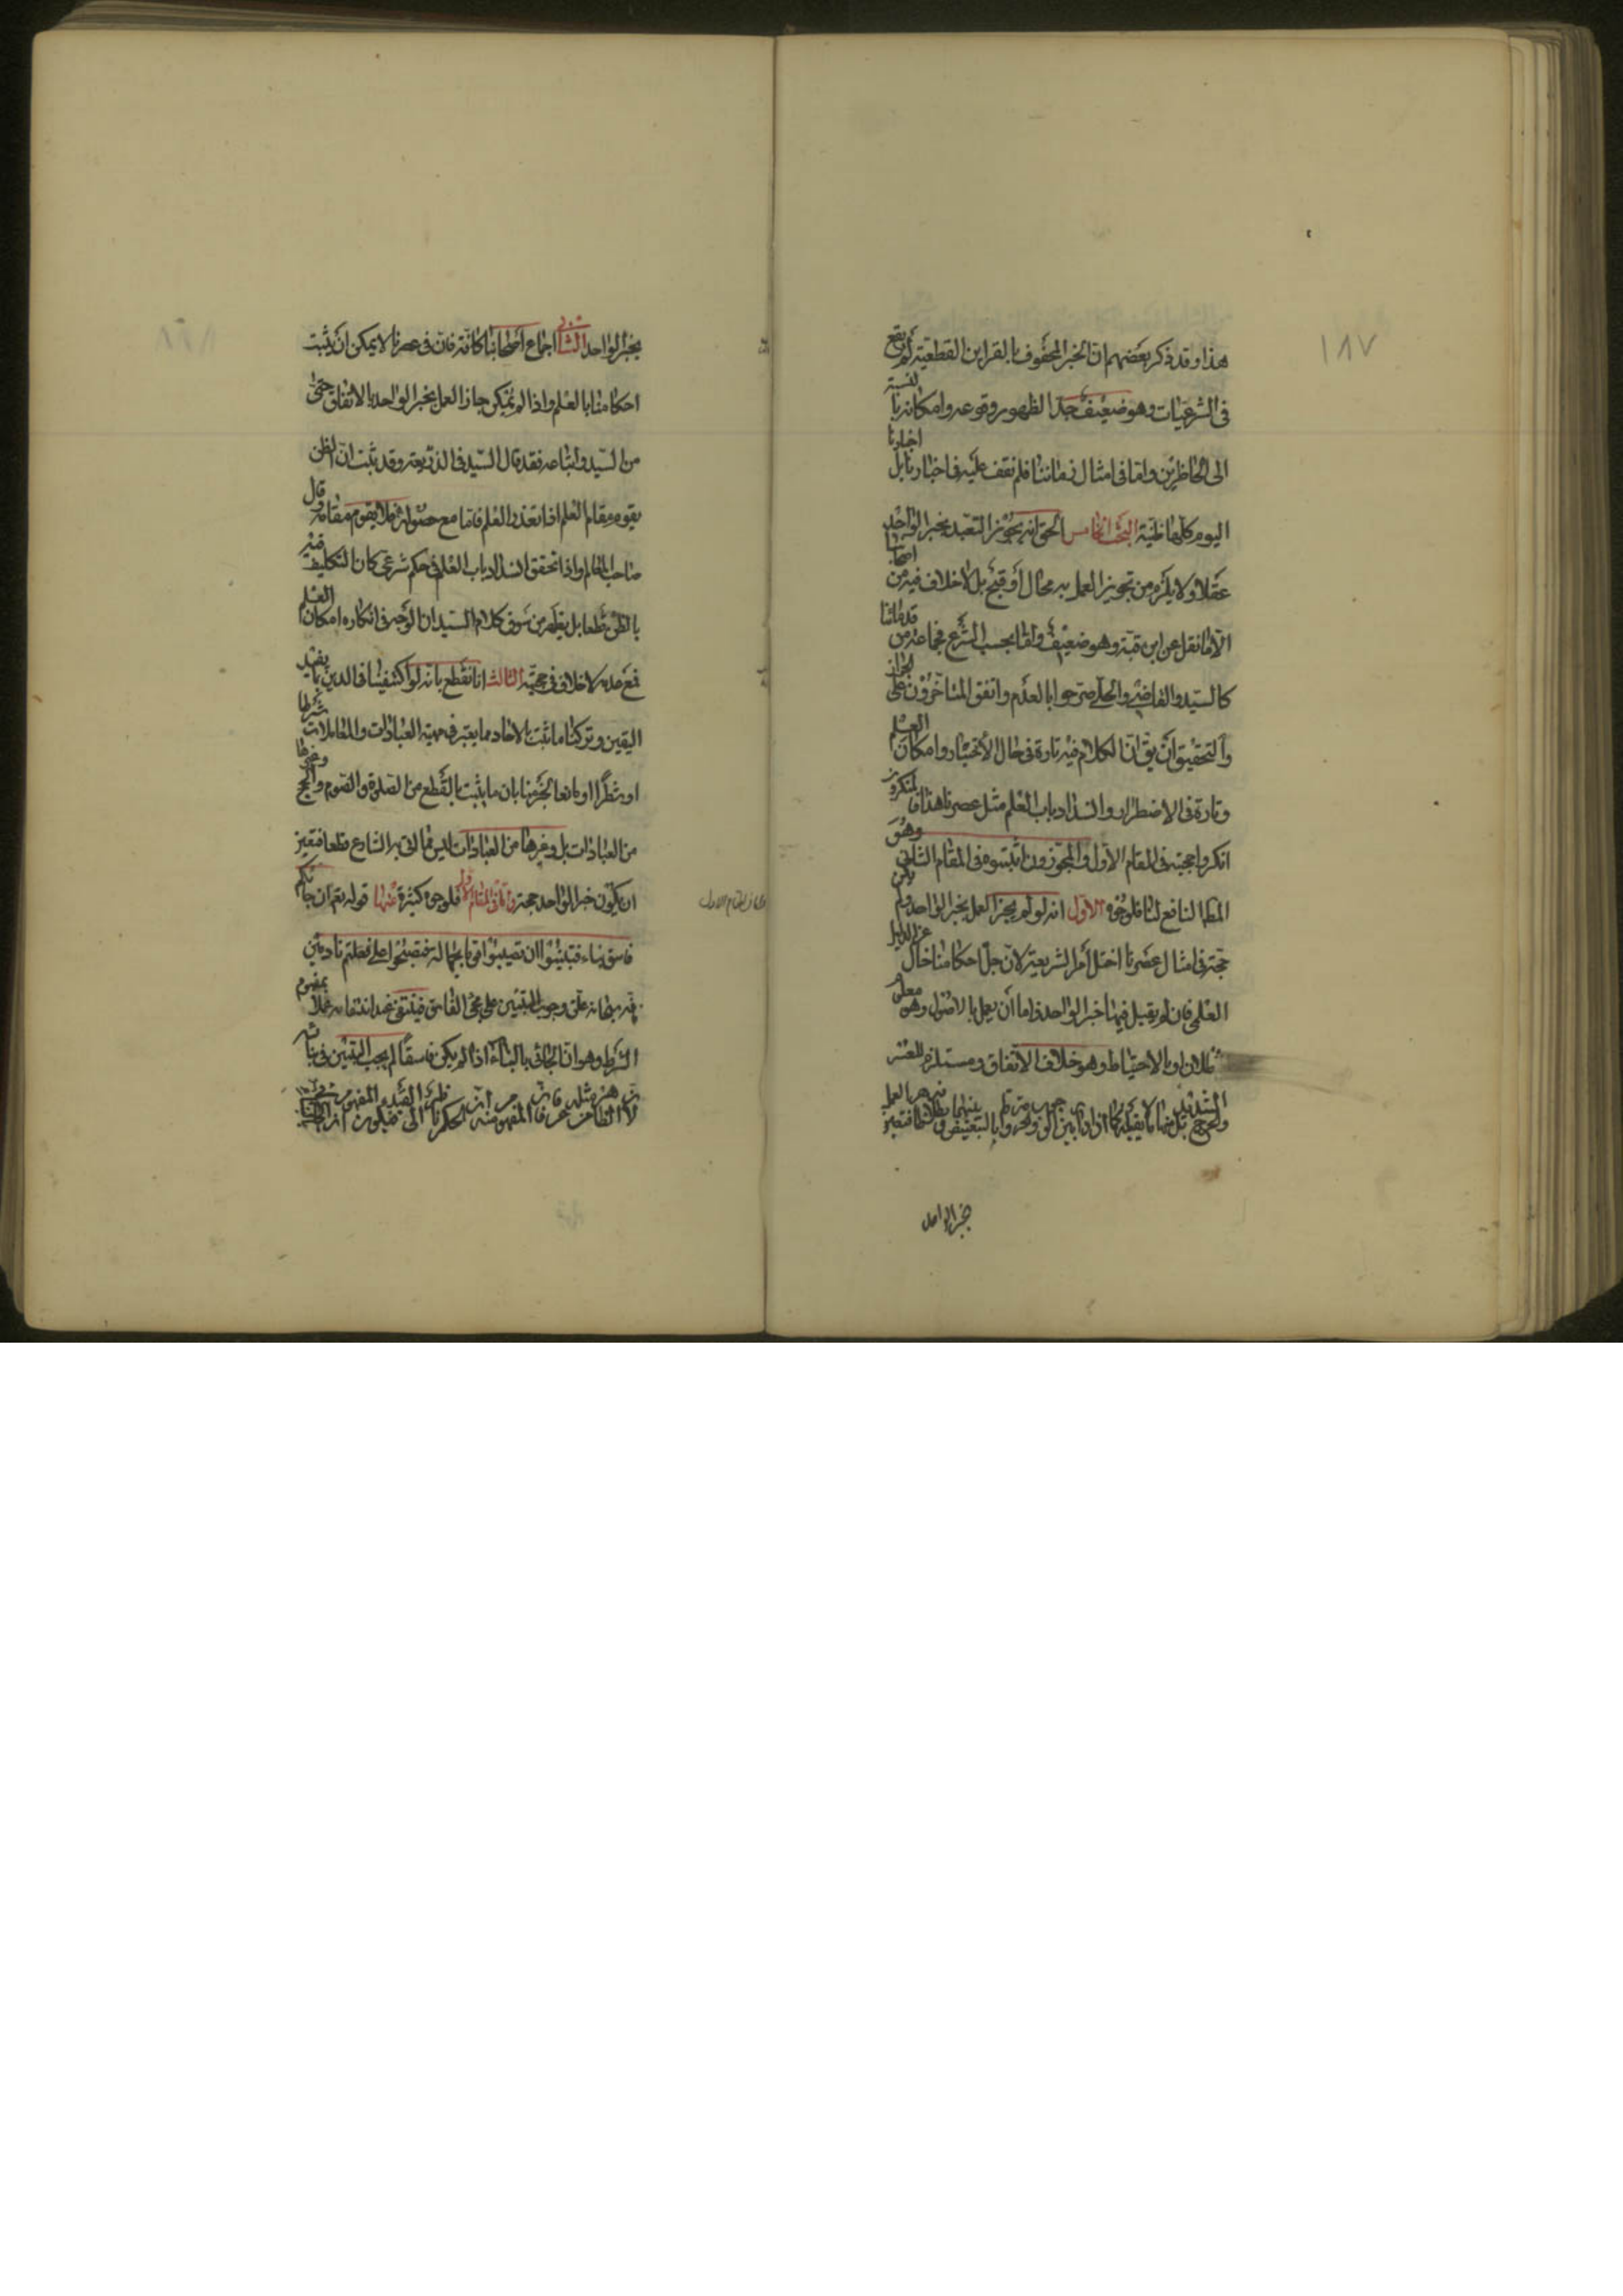 ١٨٧
هذا وقد ذكر بعضهم ان الخبر المحفوف بالقراين القطعية لم يقع
فى الشرعيات وهو ضعيف جدا لظهور وقوعه وامكانه بالنسبة
الى الحاضرين واما فى امثال زماننا فلم نقف عليه فى اخبارنا بل اخبارنا
اليوم كلها ظنية البحث الخامس الحق انه يجوز التعبد بخبر الواحد
عقلا ولا يلزم من تجويز العمل به محال أو قبيح بل لا خلاف فيه من اصحابنا
الا ما نقل عن ابن قبة وهو ضعيف واما بحسب الشرع فجماعة من قدمائنا
كالسيد والقاضى والحلى صرحوا بالعدم واتفق المتاخرون على الجواز
والتحقيق أن يق ان الكلام فيه تارة فى حال الأختيار وامكان العلم
وتارة فى الاضطرار وانسداد باب العلم مثل عصرنا هذا فالمنكرون
انكروا حجيته فى المقام الاول والمجوزون اثبتوه فى المقام الثانى وهو
المط النافع لنا فلوجوه الاول انه لو لم يجز العمل بخبر الواحد ولم يكن
حجة فى امثال عصرنا اختل أمر الشريعة لان جل احكامنا خال عن الدليل
العلمى فان لم يقبل فيها خبر الواحد فاما أن يعمل بالاصول وهو معلوم
البطلان او بالاحتياط وهو خلاف الاتفاق ومستلزم للعسر
الشديد
والحرج
خبر الواحد
بخبر الواحد الثانى اجماع اصحابنا كافة فان فى عصرنا لا يمكن ان يثبت
احكامنا بالعلم واذا لم يمكن جاز العمل بخبر الواحد بالاتفاق حتى
من السيد واتباعه فقد قال السيد فى الذريعة وقد ثبت ان الظن
يقوم مقام العلم اذا تعذر العلم فاما مع حصوله فلا يقوم مقامه وقال
صاحب المعالم واذا تحقق انسداد باب العلم فى حكم شرعى كان التكليف فيه
بالظن قطعا بل يظهر من سوق كلام السيد ان الوجه فى انكاره امكان العلم
فمع عدمه لا خلاف فى حجيته الثالث انا نقطع بانه لو اكتفينا فى الدين بما يفيد
اليقين وتركنا ما ثبت بالاحاد مما يعتبر فى مهية العبادات والمعاملات شرطا
او شطرا او مانعا لجزمنا بان ما يثبت بالقطع من الصلوة والصوم والحج وغيرها
من العبادات بل وغيرها من العبادات ليس مما اتى به الشارع قطعا فتعين
ان يكون خبر الواحد حجة واما فى المقام الاول فلوجوه كثيرة منها قوله تعم ان جائكم
فاسق بنباء فتبينوا ان تصيبوا قوما بجهالة فتصبحوا على ما فعلتم نادمين
فانه سبحانه علق وجوب التبين على مجئ الفاسق فينتفى عند انتفائه عملا بمفهوم
الشرط وهو ان الجائى بالنباء اذا لم يكن فاسقا لم يجب التبين فى بنائه
واما فى المقام الاول